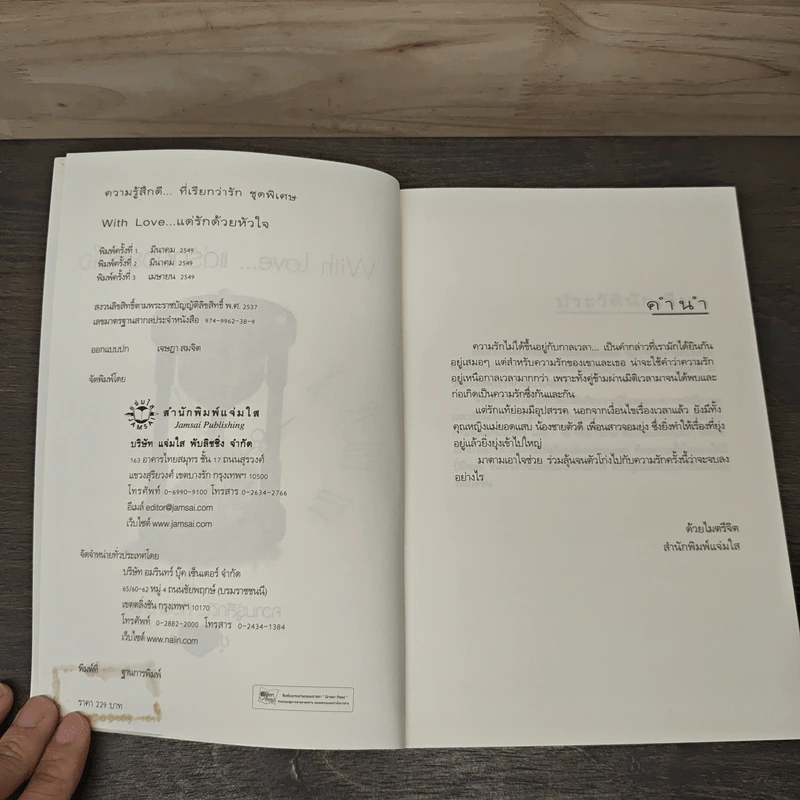 ความรู้สึกดี... ที่เรียกว่ารัก ชุดพิเศษ
With Love...แด่รักด้วยหัวใจ
พิมพ์ครั้งที่ 1 มีนาคม 2549
พิมพ์ครั้งที่ 2 มีนาคม 2549
พิมพ์ครั้งที่ 3 เมษายน 2549
สงวนลิขสิทธิ์ตามพระราชบัญญัติลิขสิทธิ์ พ.ศ. 2537
เลขมาตรฐานสากลประจำหนังสือ 974-9962-38-9
ออกแบบปก เจษฎา สมจิต
จัดพิมพ์โดย
สำนักพิมพ์แจ่มใส
Jamsai Publishing
บริษัท แจ่มใส พับลิชชิ่ง จำกัด
163 อาคารไทยสมุทร ชั้น 17 ถนนสุรวงศ์
แขวงสุริยวงศ์ เขตบางรัก กรุงเทพฯ 10500
โทรศัพท์ 0-6990-9100 โทรสาร 0-2634-2766
อีเมล์ editor@jamsai.com
เว็บไซต์ www.jamsai.com
จัดจำหน่ายทั่วประเทศโดย
บริษัท อมรินทร์ บุ๊ค เซ็นเตอร์ จำกัด
65/60-62 หมู่ 4 ถนนชัยพฤกษ์ (บรมราชชนนี)
เขตตลิ่งชัน กรุงเทพฯ 10170
โทรศัพท์ 0-2882-2000 โทรสาร 0-2434-1384
เว็บไซต์ www.naiin.com
พิมพ์ที่ ฐานการพิมพ์
ราคา 229 บาท
คำนำ
ความรักไม่ได้ขึ้นอยู่กับกาลเวลา... เป็นคำกล่าวที่เรามักได้ยินกัน
อยู่เสมอๆ แต่สำหรับความรักของเขาและเธอ น่าจะใช้คำว่าความรัก
อยู่เหนือกาลเวลามากกว่า เพราะทั้งคู่ข้ามผ่านมิติเวลามาจนได้พบและ
ก่อเกิดเป็นความรักซึ่งกันและกัน
แต่รักแท้ย่อมมีอุปสรรค นอกจากเงื่อนไขเรื่องเวลาแล้ว ยังมีทั้ง
คุณหญิงแม่ยอดแสบ น้องชายตัวดี เพื่อนสาวจอมยุ่ง ซึ่งยิ่งทำให้เรื่องที่ยุ่ง
อยู่แล้วยิ่งยุ่งเข้าไปใหญ่
มาตามเอาใจช่วย ร่วมลุ้นจนตัวโก่งไปกับความรักครั้งนี้ว่าจะจบลง
อย่างไร
ด้วยไมตรีจิต
สำนักพิมพ์แจ่มใส